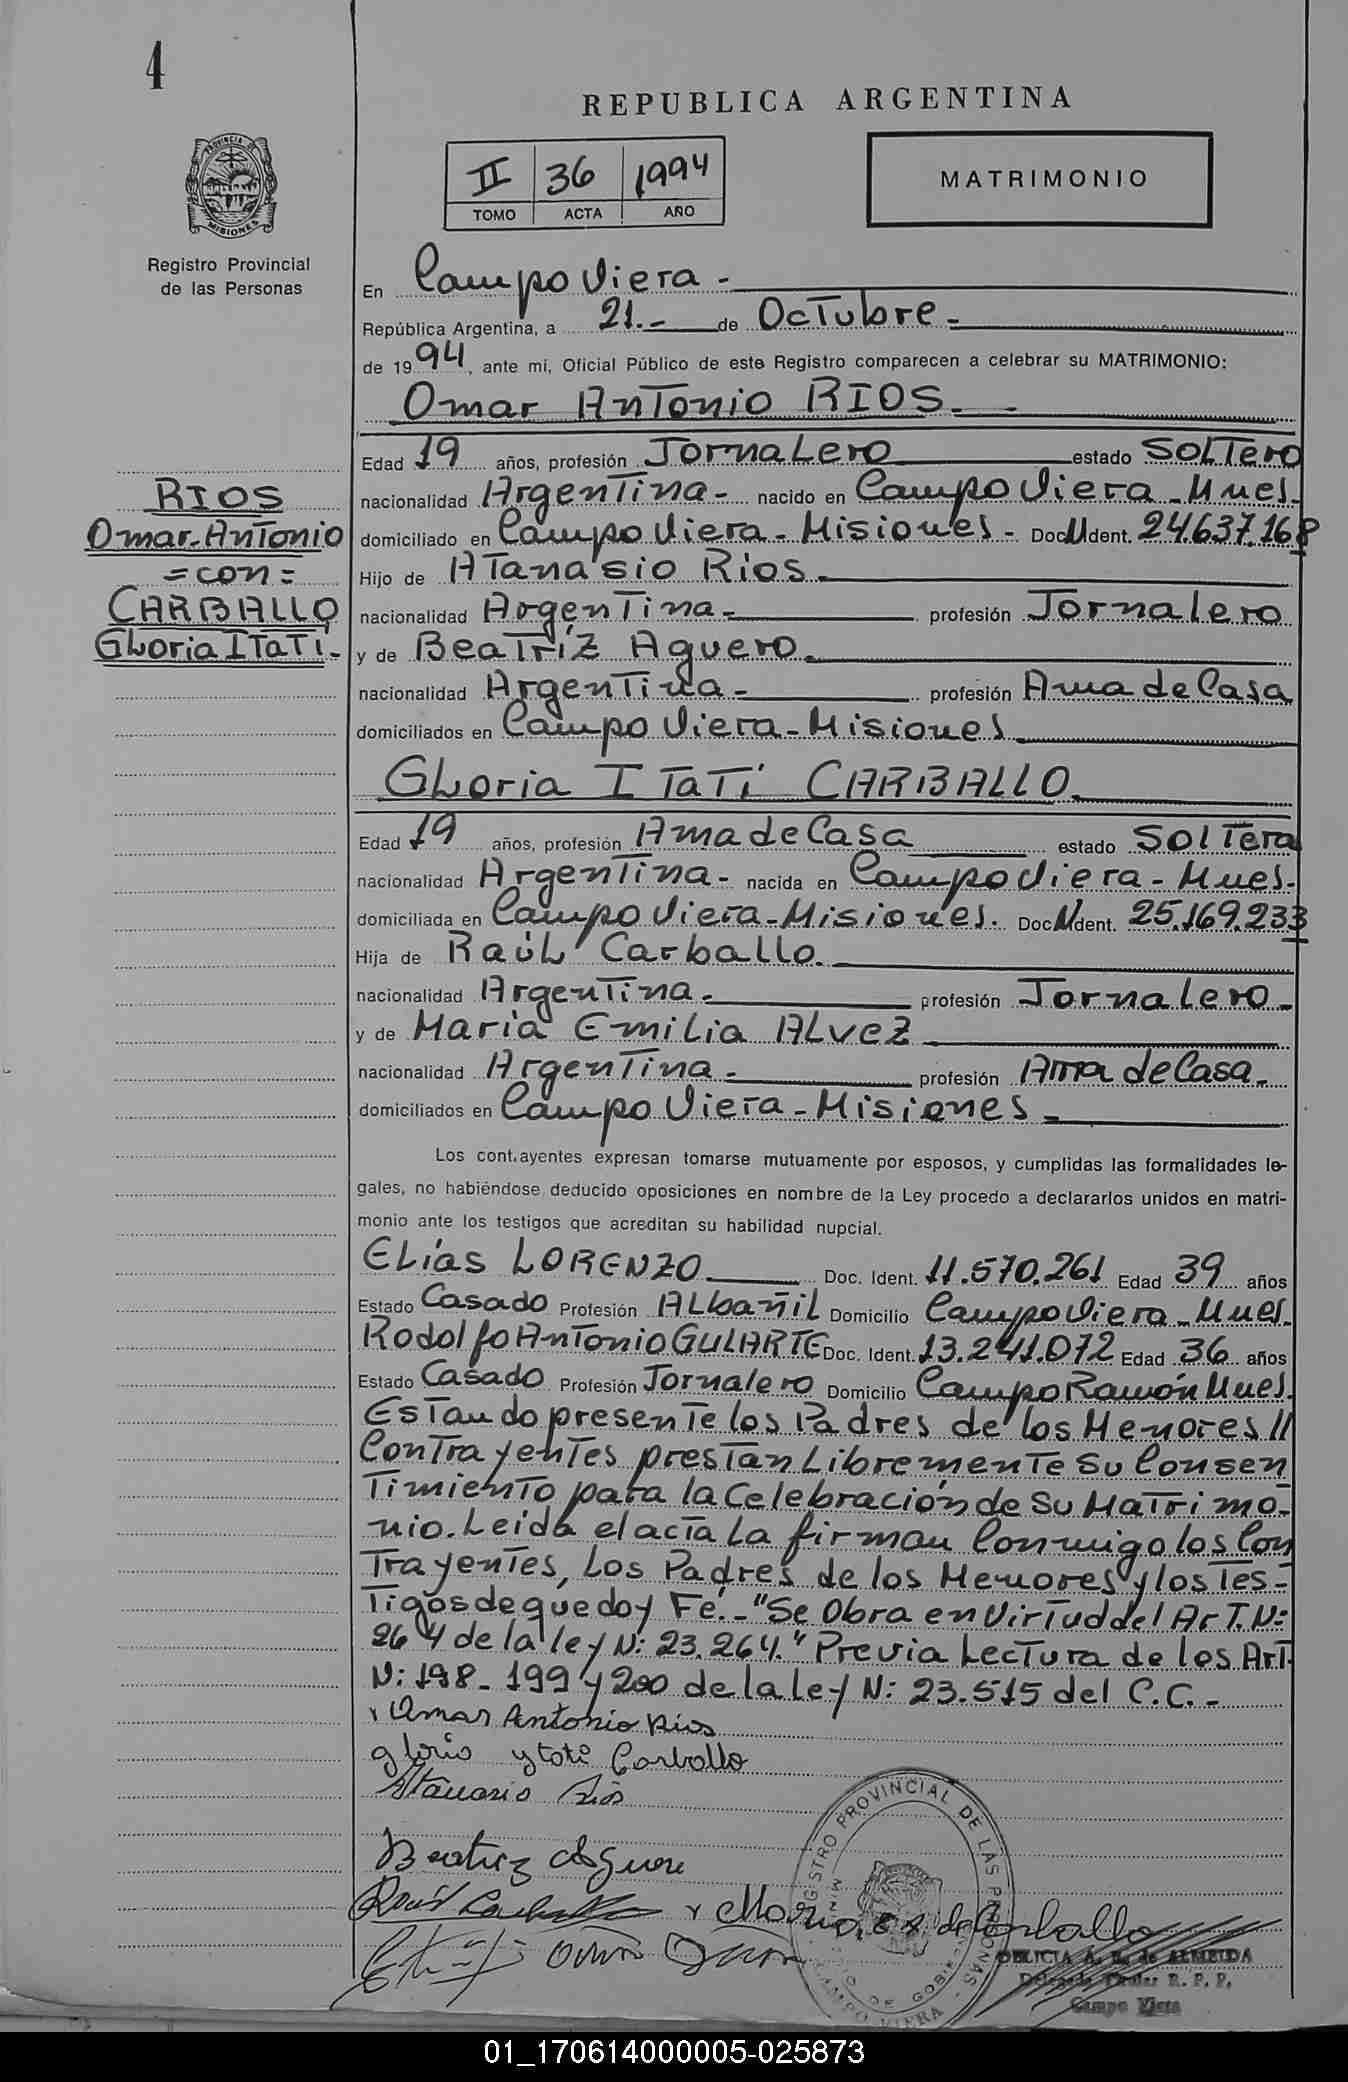 4
REPUBLICA ARGENTINA
II 36 1994
TOMO ACTA AÑO
MATRIMONIO
PROVINCIA DE MISIONES
Registro Provincial
de las Personas
En Campo Viera.-
República Argentina, a 21.- de Octubre.-
de 1994, ante mi, Oficial Público de este Registro comparecen a celebrar su MATRIMONIO:
Omar Antonio RIOS.-
Edad 19 años, profesión Jornalero estado Soltero
nacionalidad Argentina.- nacido en Campo Viera-Mnes.
domiciliado en Campo Viera-Misiones.- Doc.N.Ident. 24.637.168
Hijo de Atanasio Rios.
nacionalidad Argentina.- profesión Jornalero
y de Beatríz Aguero.
nacionalidad Argentina.- profesión Ama de Casa
domiciliados en Campo Viera-Misiones
Gloria Itatí CARBALLO.
Edad 19 años, profesión Ama de Casa estado Soltera
nacionalidad Argentina.- nacida en Campo Viera-Mnes.
domiciliada en Campo Viera-Misiones. Doc.N.Ident. 25.169.233
Hija de Raúl Carballo.
nacionalidad Argentina.- profesión Jornalero.-
y de María Emilia Alvez
nacionalidad Argentina.- profesión Ama de Casa.-
domiciliados en Campo Viera-Misiones.-
RIOS
Omar-Antonio
=con=
CARBALLO
Gloria Itatí.-
Los contrayentes expresan tomarse mutuamente por esposos, y cumplidas las formalidades le-
gales, no habiéndose deducido oposiciones en nombre de la Ley procedo a declararlos unidos en matri-
monio ante los testigos que acreditan su habilidad nupcial.
Elías LORENZO Doc. Ident. 11.570.261 Edad 39 años
Estado Casado Profesión Albañil Domicilio Campo Viera-Mnes.
Rodolfo Antonio GULARTE Doc. Ident. 13.241.072 Edad 36 años
Estado Casado Profesión Jornalero Domicilio Campo Ramón Mnes.
Estando presente los Padres de los Menores //
Contrayentes prestan Libremente su Consen
timiento para la Celebración de su Matrimo-
nio. Leida el acta La firman Conmigo los Con
trayentes, Los Padres de los Menores y los Tes-
tigos de que doy Fé.- "Se Obra en Virtud del Art. N:
264 de la ley N: 23.264." Previa Lectura de los Art.
N: 198- 199 y 200 de la ley N: 23.515 del C.C.-
Omar Antonio Rios
gloria ytati Carballo
Atanasio Rios
Beatriz Aguere
Raúl Carballo María E A. de Carballo
REGISTRO PROVINCIAL DE LAS PERSONAS
MINISTERIO DE GOBIERNO
CAMPO VIERA
DELICIA A. R. de ALMEIDA
Delegado Titular R. P. P.
Campo Viera
01_170614000005-025873